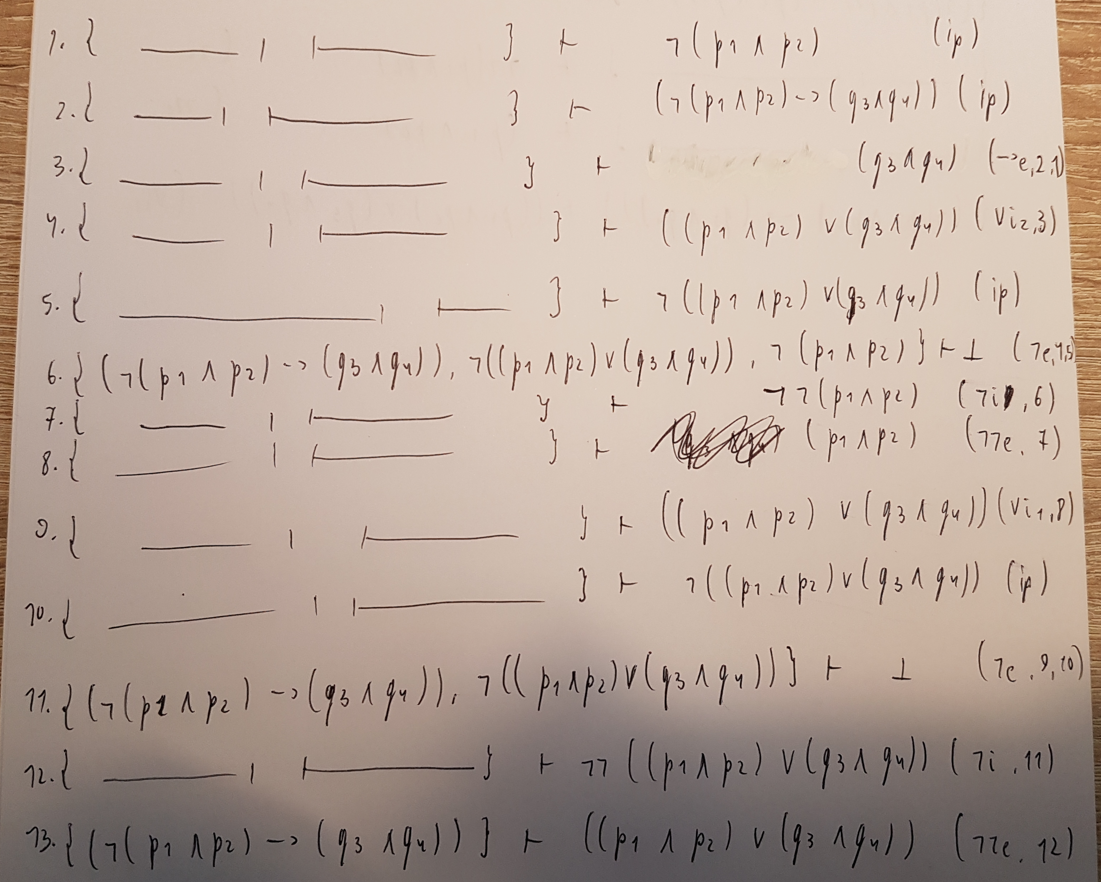 1. { —— | |—— } ⊢ ¬(p1 ∧ p2) (ip)
2. { —— | |—— } ⊢ (¬(p1 ∧ p2) -> (q3 ∧ q4)) (ip)
3. { —— | |—— } ⊢ (q3 ∧ q4) (->e, 2,1)
4. { —— | |—— } ⊢ ((p1 ∧ p2) ∨ (q3 ∧ q4)) (∨i2, 3)
5. { —— | |—— } ⊢ ¬((p1 ∧ p2) ∨ (q3 ∧ q4)) (ip)
6. { (¬(p1 ∧ p2) -> (q3 ∧ q4)), ¬((p1 ∧ p2) ∨ (q3 ∧ q4)), ¬(p1 ∧ p2) } ⊢ ⊥ (¬e, 4,5)
7. { —— | |—— } ⊢ ¬¬(p1 ∧ p2) (¬i, 6)
8. { —— | |—— } ⊢ (p1 ∧ p2) (¬¬e, 7)
9. { —— | |—— } ⊢ ((p1 ∧ p2) ∨ (q3 ∧ q4)) (∨i1, 8)
10. { —— | |—— } ⊢ ¬((p1 ∧ p2) ∨ (q3 ∧ q4)) (ip)
11. { (¬(p1 ∧ p2) -> (q3 ∧ q4)), ¬((p1 ∧ p2) ∨ (q3 ∧ q4)) } ⊢ ⊥ (¬e, 9,10)
12. { —— | |—— } ⊢ ¬¬((p1 ∧ p2) ∨ (q3 ∧ q4)) (¬i, 11)
13. { (¬(p1 ∧ p2) -> (q3 ∧ q4)) } ⊢ ((p1 ∧ p2) ∨ (q3 ∧ q4)) (¬¬e, 12)